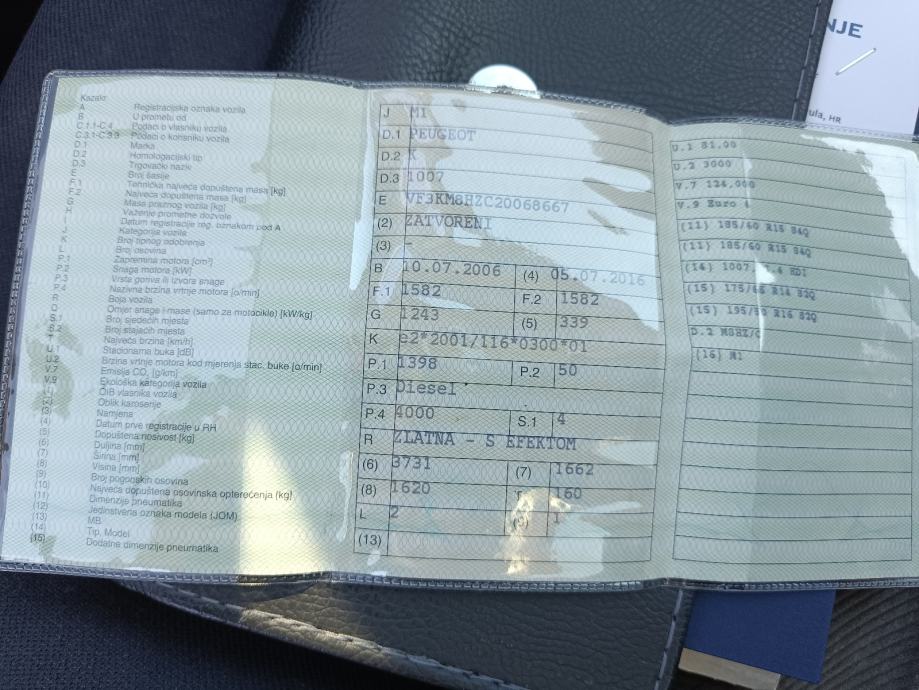 NJE
ula, HR
Kazalo:
A Registracijska oznaka vozila
B U prometu od
C.1.1-C.4 Podaci o vlasniku vozila
C.3.1-C.3.3 Podaci o korisniku vozila
D.1 Marka
D.2 Homologacijski tip
D.3 Trgovački naziv
E Broj šasije
F.1 Tehnička najveća dopuštena masa [kg]
F.2 Najveća dopuštena masa [kg]
G Masa praznog vozila [kg]
H Važenje prometne dozvole
I Datum registracije reg. oznakom pod A
J Kategorija vozila
K Broj tipnog odobrenja
L Broj osovina
P.1 Zapremina motora [cm³]
P.2 Snaga motora [kW]
P.3 Vrsta goriva ili izvora snage
P.4 Nazivna brzina vrtnje motora [o/min]
R Boja vozila
Q Omjer snage i mase (samo za motocikle) [kW/kg]
S.1 Broj sjedećih mjesta
S.2 Broj stajaćih mjesta
T Najveća brzina [km/h]
U.1 Stacionarna buka [dB]
U.2 Brzina vrtnje motora kod mjerenja stac. buke [o/min]
V.7 Emisija CO₂ [g/km]
V.9 Ekološka kategorija vozila
OIB vlasnika vozila
(2) Oblik karoserije
(3) Namjena
(4) Datum prve registracije u RH
(5) Dopuštena nosivost [kg]
(6) Duljina [mm]
(7) Širina [mm]
(8) Visina [mm]
(9) Broj pogonskih osovina
(10) Najveća dopuštena osovinska opterećenja [kg]
(11) Dimenzije pneumatika
(12) Jedinstvena oznaka modela (JOM)
(13) MB
(14) Tip, Model
(15) Dodatne dimenzije pneumatika
J M1
D.1 PEUGEOT
D.2 K
D.3 1007
E VF3KM8HZC20068667
(2) ZATVORENI
(3) -
B 10.07.2006 (4) 05.07.2016
F.1 1582 F.2 1582
G 1243 (5) 339
K e2*2001/116*0300*01
P.1 1398 P.2 50
P.3 Diesel
P.4 4000 S.1 4
R ZLATNA - S EFEKTOM
(6) 3731 (7) 1662
(8) 1620 T 160
L 2 (9) 1
(13)
U.1 81.00
U.2 3000
V.7 124.000
V.9 Euro 4
(11) 185/60 R15 84Q
(11) 185/60 R15 84Q
(14) 1007, 1.4 HDI
(15) 175/65 R14 82Q
(15) 195/50 R16 82Q
D.2 M8HZ/C
(16) M1